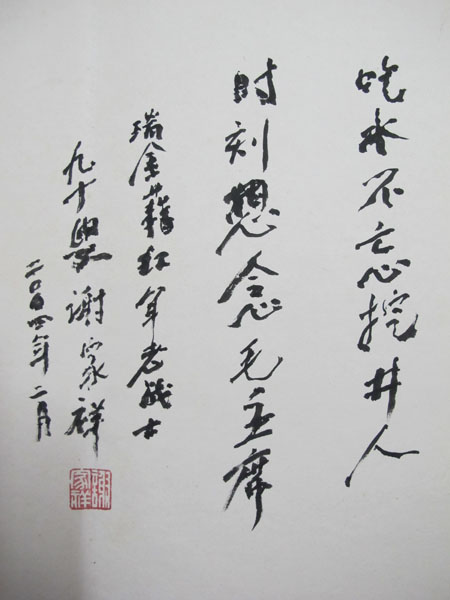 吃水不忘挖井人
时刻想念毛主席
瑞金籍红军老战士
九十叟 谢家祥
二〇〇四年二月
謝家祥